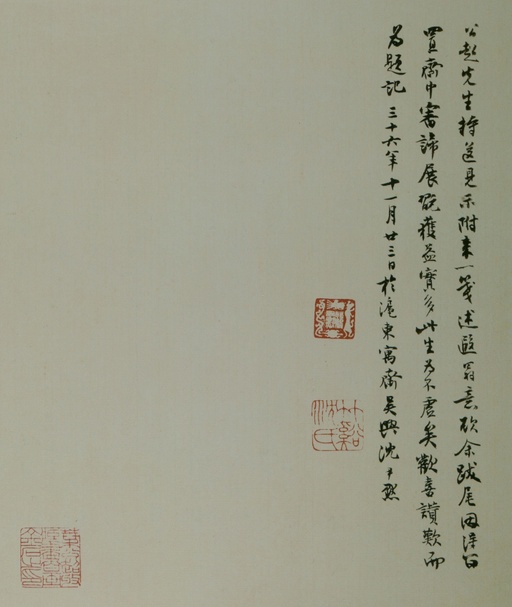 公彪先生持送見示附來一箋述遐翁意欲余跋尾因淂留
置齋中審諦展翫獲益實多此生為不虛矣歡喜讚歎而
為題記三十六年十一月廿三日於滬東寓齋吳興沈尹默
竹谿沈氏